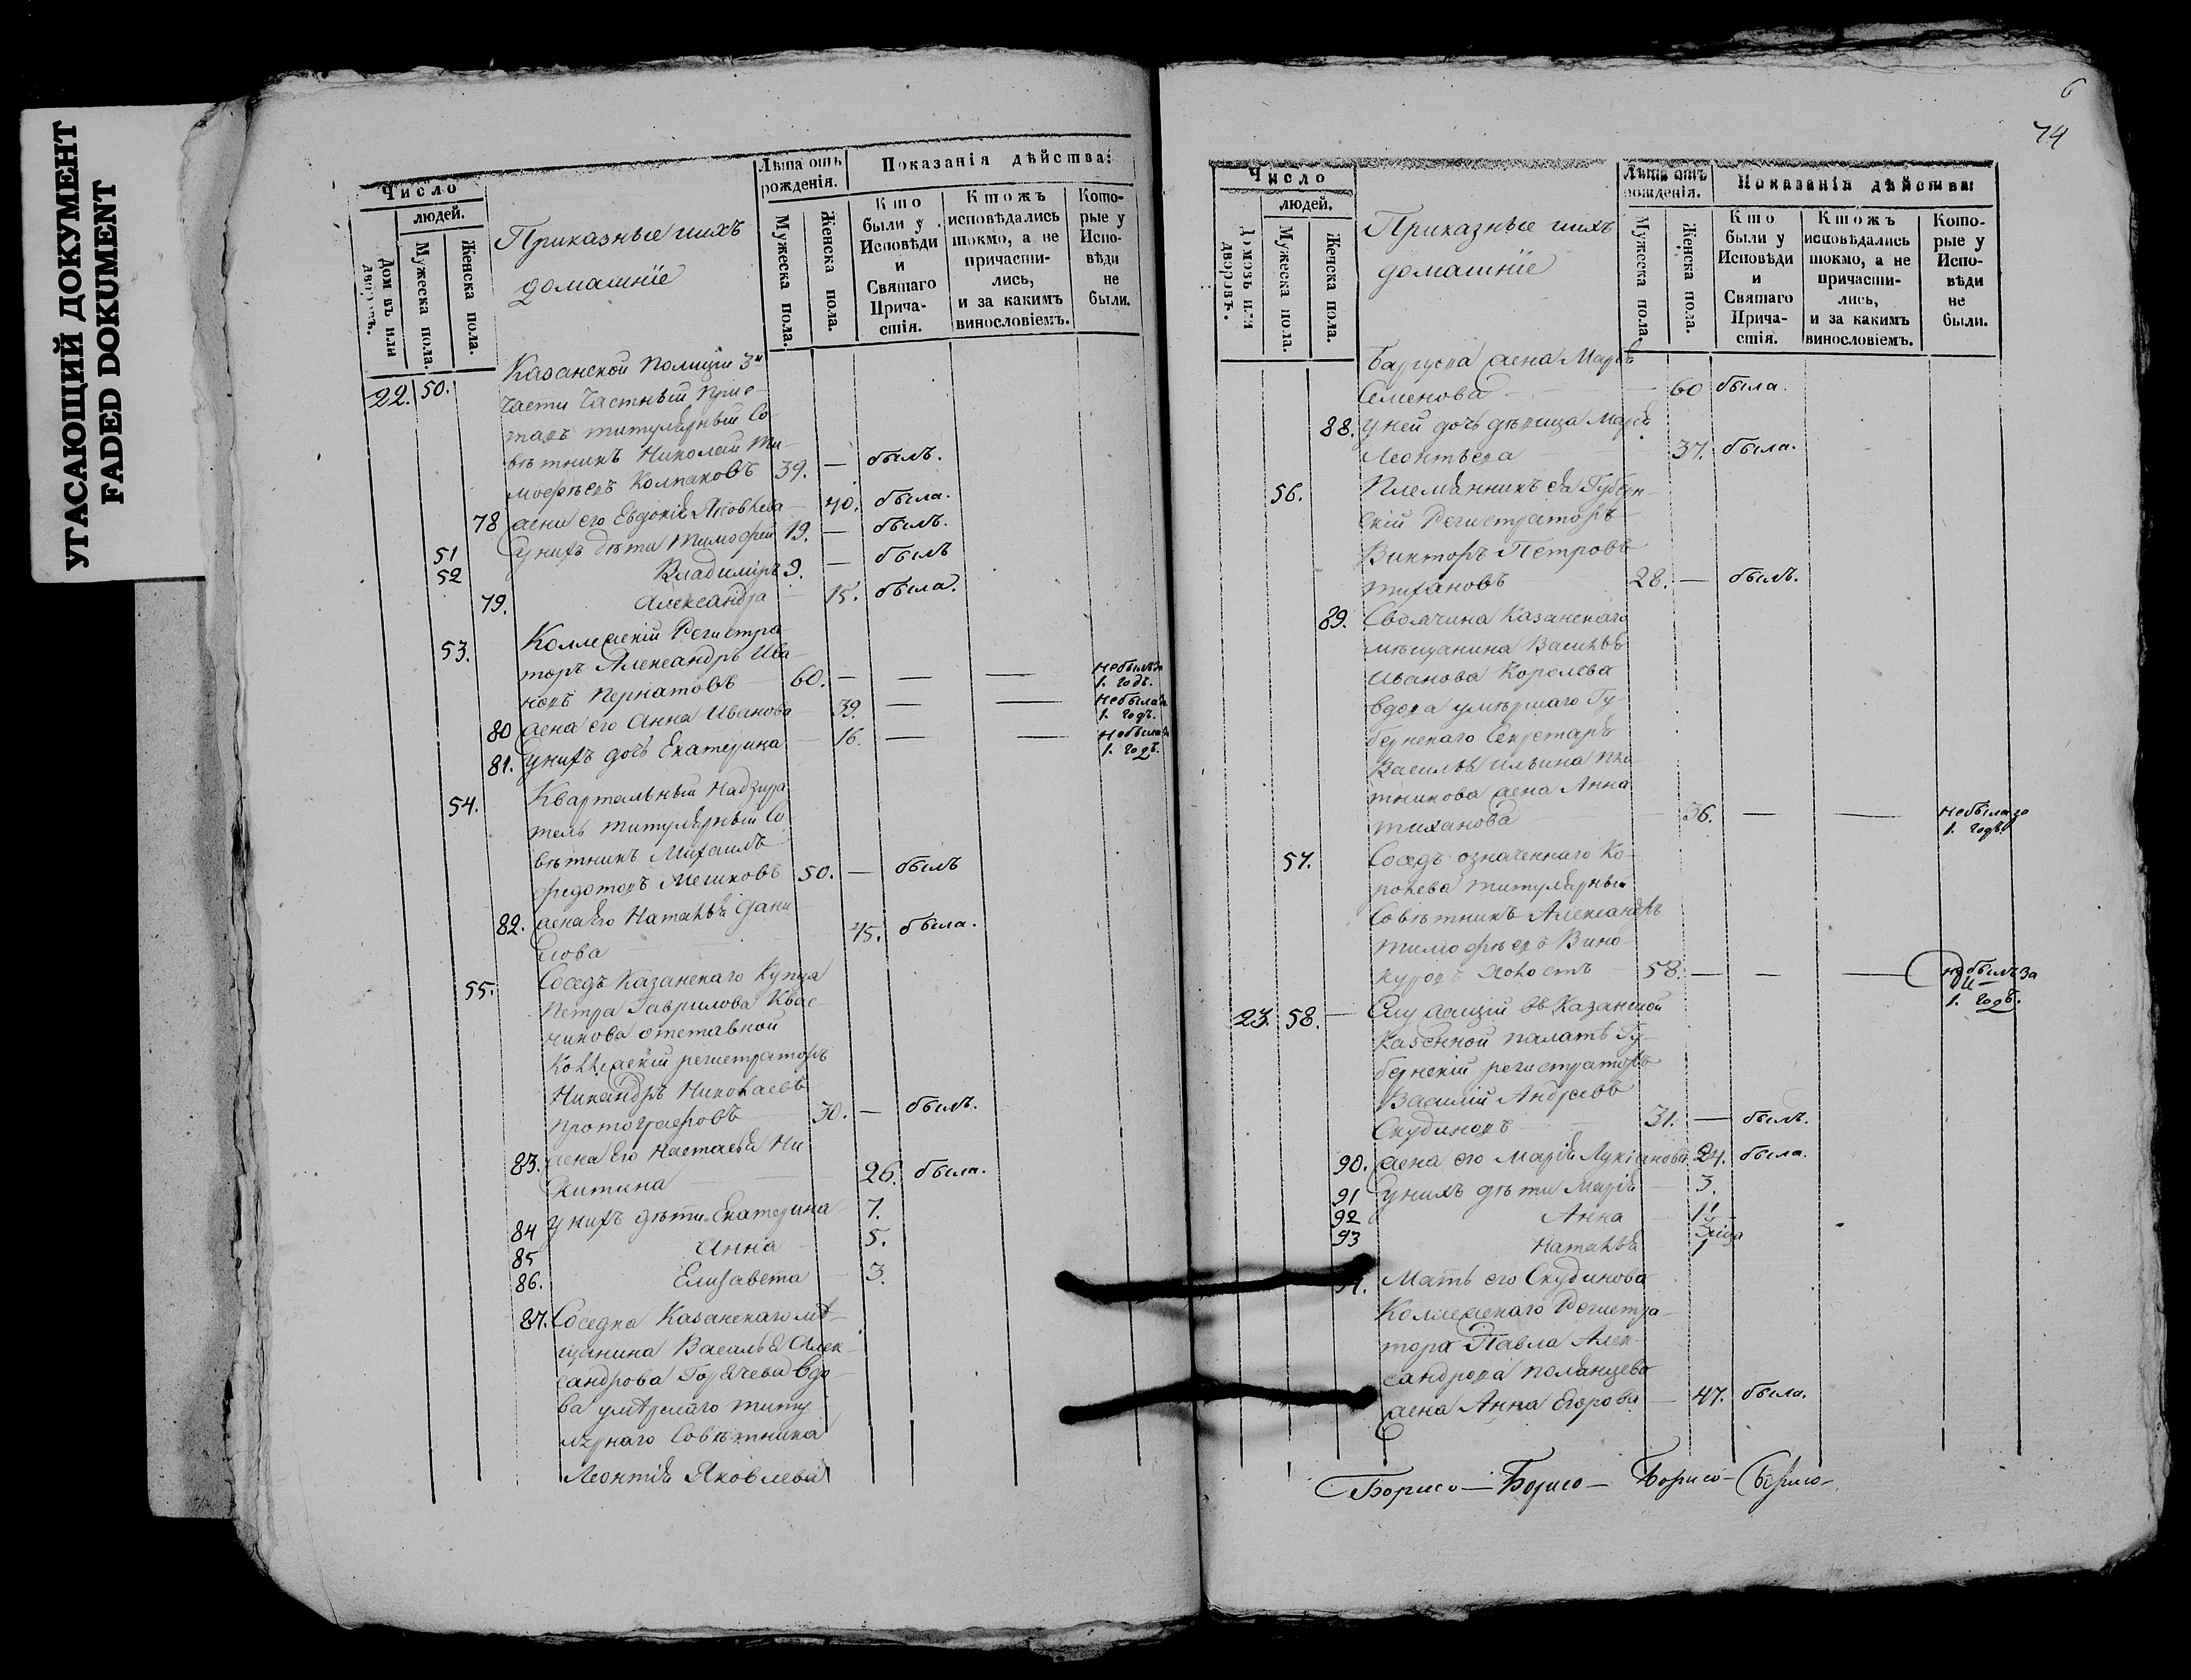 УГАСАЮЩИЙ ДОКУМЕНТ
FADED DOKUMENT
Число
людей.
Домовъ или дворовъ.
Мужеска пола.
Женска пола.
Приказные и ихъ
домашніе
Лѣта отъ рожденія.
Мужеска пола.
Женска пола.
Показанія дѣйства:
Кто были у Исповѣди и Святаго Причастія.
Ктожъ исповѣдались токмо, а не причастились, и за какимъ винословіемъ.
Которые у Исповѣди не были.
22. 50. Казанской Полиціи 3й
части Частный при-
ставъ титулярный Со-
вѣтникъ Николай Ти-
мофѣевъ Колпаковъ 39. — былъ.
78 жена его Евдокія Яковлева — 40. была.
51 У нихъ дѣти Тимофей 19. — былъ.
52 Владиміръ 9. — былъ
79. Александра — 15. была.
53. Коллежскій Регистра-
торъ Александръ Ива-
новъ Пернатовъ — 60. — — — небылъ за
1. годъ.
80 жена его Анна Иванова 39. — — небыла за
1. годъ.
81. У нихъ дочь Екатерина — 16. — — небыла за
1. годъ.
54. Квартальный Надзира-
тель титулярный Со-
вѣтникъ Михаилъ
Федотовъ Мешковъ 50. — былъ
82. жена его Наталья Дани-
лова 45. была.
55. Соседъ Казанскаго Купца
Петра Гаврилова Квас-
никова отставной
Коллежскій регистраторъ
Никандръ Николаевъ
Протографовъ 30. — былъ.
83. жена Его Настасья Ни-
китина 26. была.
84 У нихъ дѣти Екатерина 7.
85 Анна — 5.
86. Елизавета — 3.
87. Соседка Казанскаго мѣ-
щанина Василья Алек-
сандрова Горячева вдо-
ва умершаго титу-
лярнаго Совѣтника
Леонтія Яковлева
6
74
Число
людей.
Домовъ или дворовъ.
Мужеска пола.
Женска пола.
Приказные и ихъ
домашніе
Лѣта отъ рожденія.
Мужеска пола.
Женска пола.
Показанія дѣйства:
Кто были у Исповѣди и Святаго Причастія.
Ктожъ исповѣдались токмо, а не причастились, и за какимъ винословіемъ.
Которые у Исповѣди не были.
жена Марья
Семенова — — 60 была.
88. У ней дочь дѣвица Марья
Леонтьева 37. была.
56. Племянникъ ея Губерн-
скій Регистраторъ
Викторъ Петровъ
Тихановъ 28. — былъ.
89. Своячина Казанскаго
мѣщанина Василья
Иванова Королева
вдова умершаго Гу-
бернскаго Секретаря
Василья Ильина
жена Анна
Тиханова — 36. — — небыла за
1. годъ.
57. Соседъ означеннаго Ко-
ролева титулярный
Совѣтникъ Александръ
Тимофѣевъ Вино-
куровъ холостъ — 58. — — — небылъ за
1. годъ.
23. 58. — Служащій въ Казанской
Казенной палатѣ Гу-
бернскій регистраторъ
Василій Андреевъ
Скудиновъ 31. — былъ.
90. жена его Марія Лукіанова 24. была.
91 У нихъ дѣти Марія — 3.
92 Анна —
93 Наталья
94. Мать его Скудинова
Коллежскаго Регистра-
тора Павла Алек-
сандрова Полянцева
жена Анна Егорова — 47. была.
Борисо— Борисо— Борисо— Борисо—